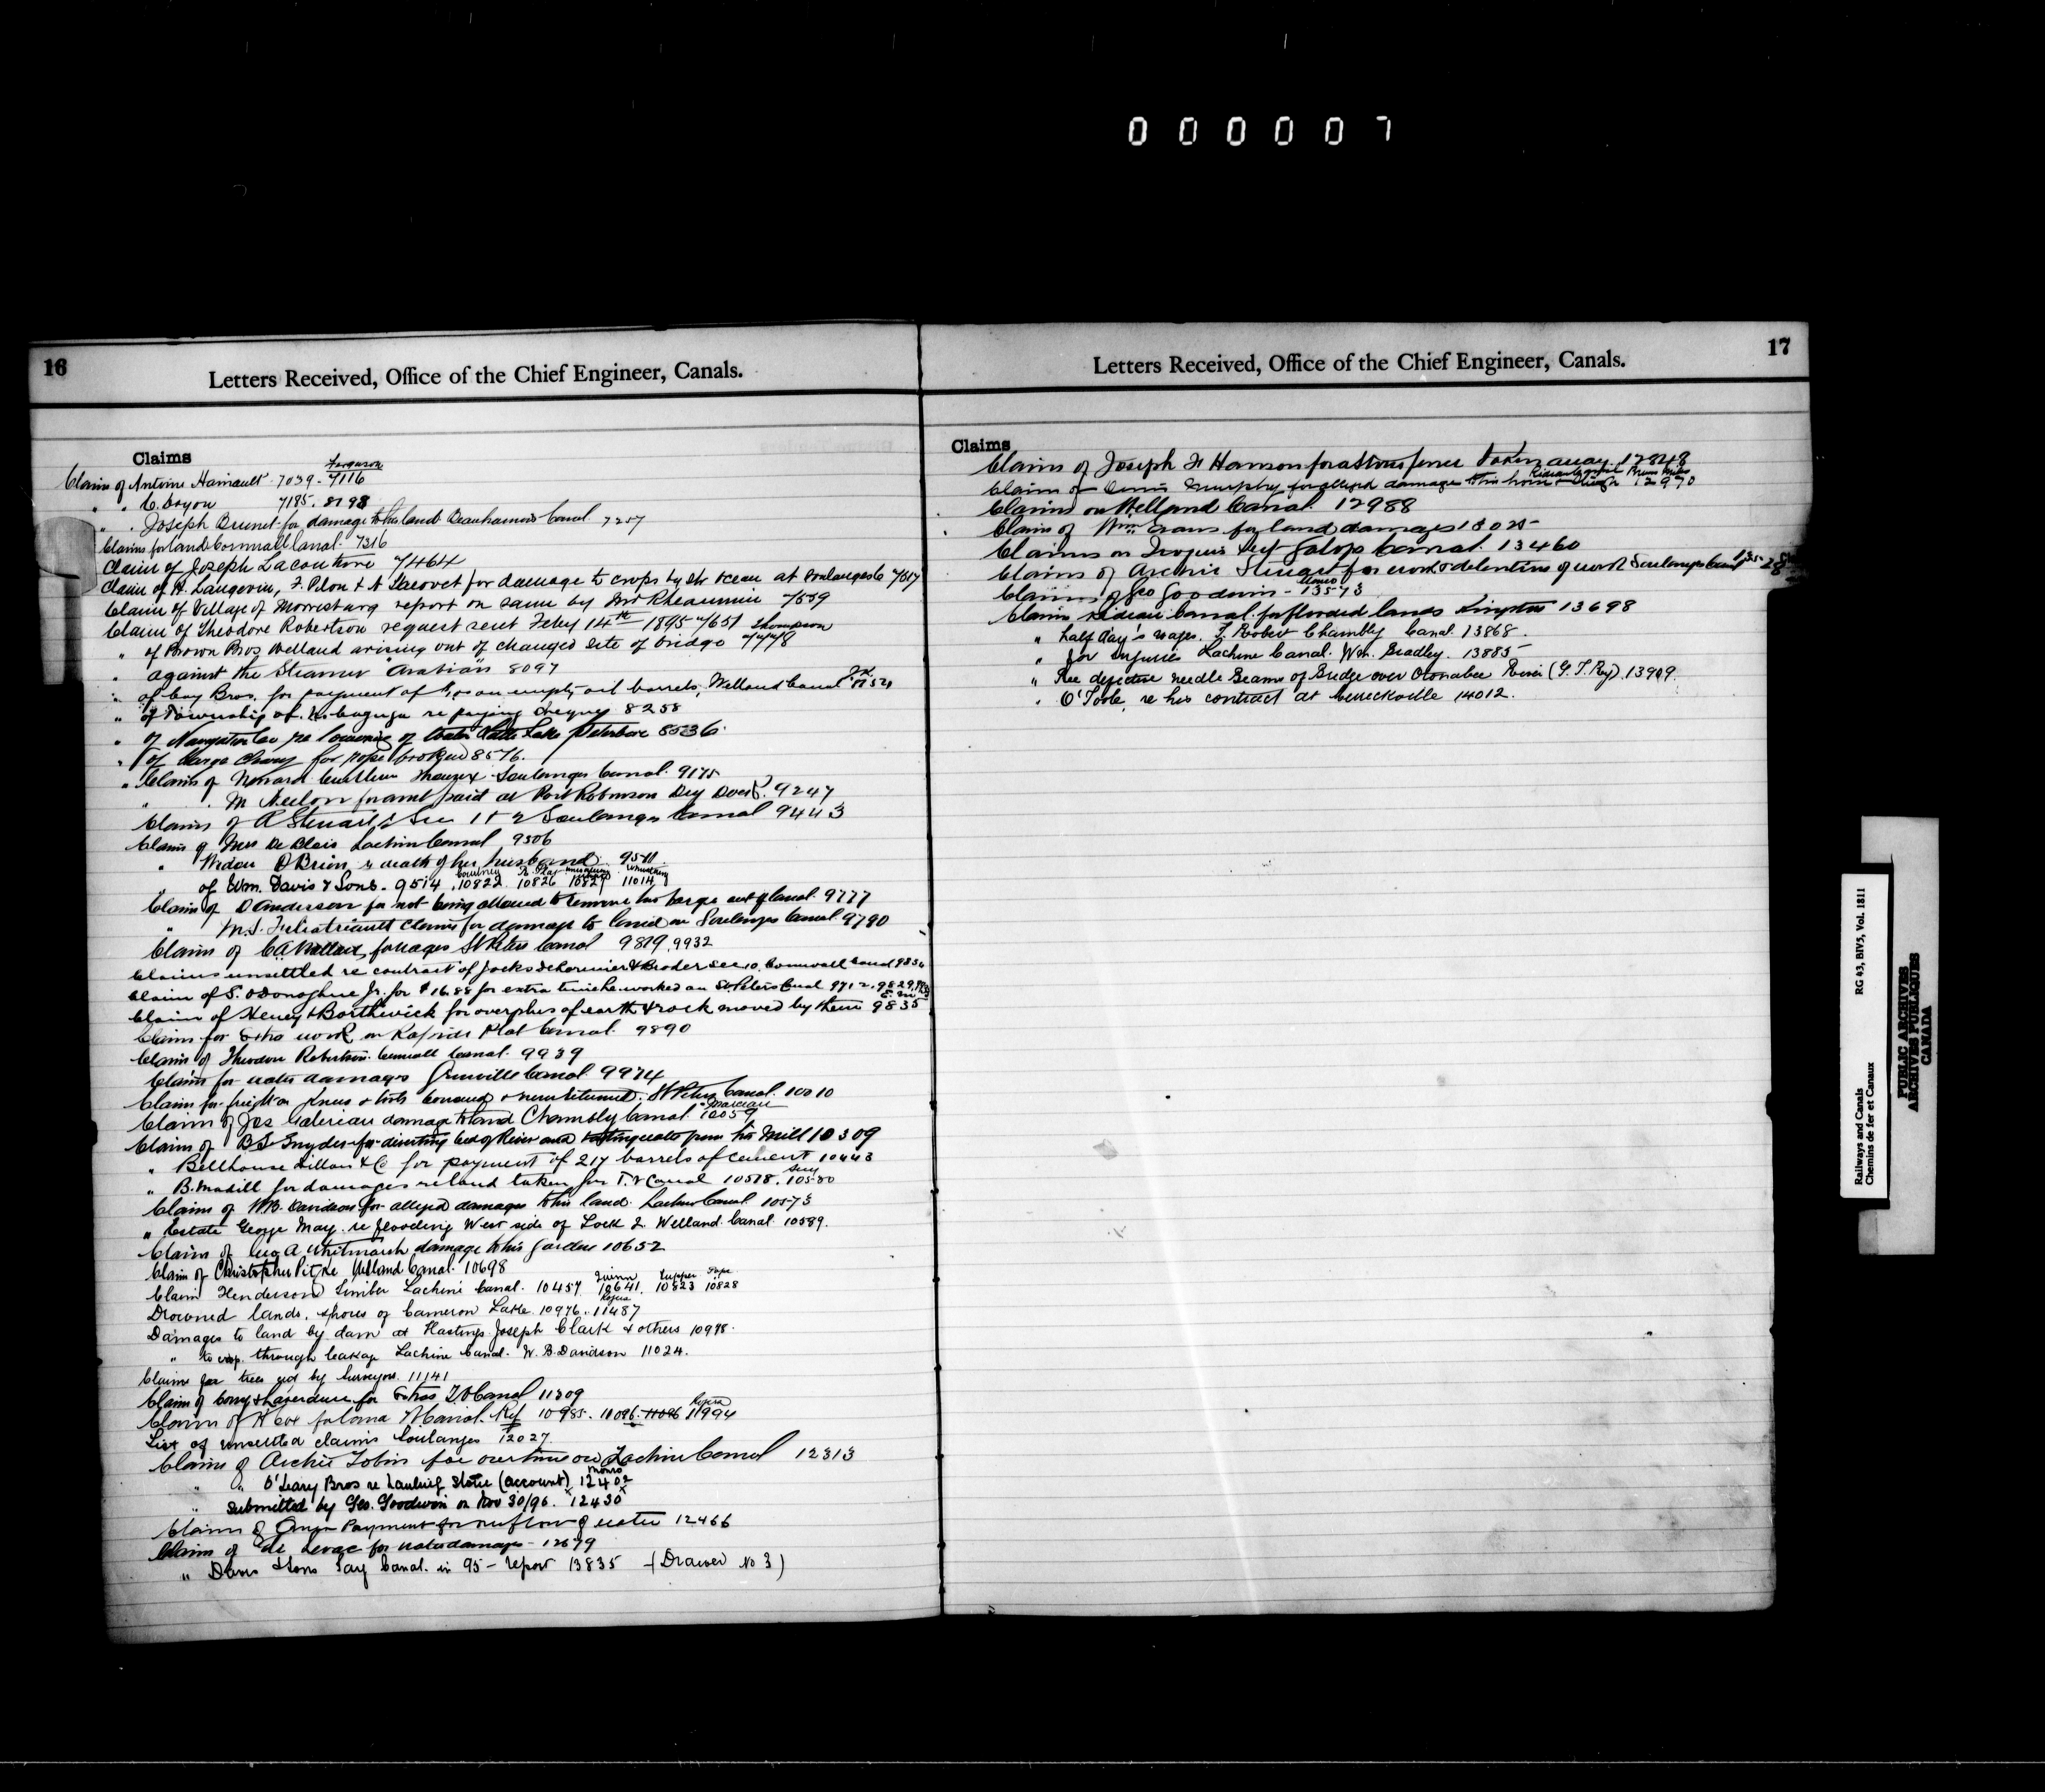 0 0 0 0 0 7
16
Letters Received, Office of the Chief Engineer, Canals.
Claims
Ferguson
Claim of Antoine Hainault 7039 - 7116
" " C. Doyon 7185. 8198
" " Joseph Brunet for damage to his land Beauharnois Canal. 7257
Claims for land Cornwall Canal. 7316
Claim of Joseph Lacouture 7464
Claim of H. Langevin, F. Pilon & A for damage to crops by Str Ocean at Soulanges C 7517
Claim of Village of Morrisburg report on same by Mr Rheaume 7559
Claim of Theodore Robertson request sent Feby 14th 1895 7651 Thompson
" of Brown Bros Welland arising out of changed site of bridge 7778
" against the Steamer "Arabian" 8097
" of Coy Bros. for payment of on empty oil barrels, Welland Canal
" of Township of re paying cheque 8258
" of Navigation Co re lowering of water Lake Peterboro 8536
" of Barge for rope broken 8576.
" Claim of Soulanges Canal. 9175
" " M Neelon for amt paid at Port Robinson Dry Dock. 9247
Claims of A Stewart Sec 1 & 2 Soulanges Canal 9443
Claim of Mrs De Blois Lachine Canal 9506
" Widow O'Brien re death of her husband. 9511
" of Wm. Davis & Sons. 9514, 10822 10826 10827 11014
Claim of D Anderson for not being allowed to remove his barge out of Canal. 9777
" M.S. claims for damage to land on Soulanges Canal. 9790
Claim of C.A. for wages St Peters Canal 9819, 9932
Claims unsettled re contract of Jocks Delorimier & Broder Sec 10. Cornwall Canal
Claim of S. O'Donoghue Jr. for $16.88 for extra time he worked on St. Peters Canal 9712, 9829
Claim of Heney & Borthwick for overplus of earth & rock moved by them 9835
Claim for Extra work on Rapide Plat Canal. 9890
Claim of Theodore Robertson. Cornwall Canal. 9939
Claim for water damages Grenville Canal. 9974
Claim for freight on St Peters Canal. 10010
Claim of Jos damage to land Chambly Canal. 10059
Claim of B.S Snyder for diverting bed of River and water from his Mill 10309
" Bellhouse Dillon & Co for payment of 217 barrels of cement 10443
" B. Madill for damages re land taken for T. V Canal 10578. 10580
Claim of W.B. Davidson for alleged damages to his land. Lachine Canal 10573
" Estate George May. re flooding West side of Lock 2. Welland Canal 10589.
Claim of Geo A Whitmarsh damage to his garden 10652
Claim of Christopher Welland Canal. 10698
Claim Henderson Timber Lachine Canal. 10457 10641. 10823 10828
Drowned lands. shores of Cameron Lake. 10976. 11487
Damages to land by dam at Hastings. Joseph Clark & others 10978.
" to crop. through leakage Lachine Canal. W. B. Davidson 11024.
Claims for trees cut by Surveyors. 11141
Claim of Corry & Laverdure for Extras T.V Canal 11309
Claim of R Cox 10985. 11096. 11994
List of unsettled claims Soulanges 12027.
Claim of Archie Tobin for overtime on Lachine Canal 12313
" " O'Leary Bros re State (account) 12402
" submitted by Geo. Goodwin on Nov 30/96. 12430
Claim of Payment for overflow of water 12466
Claim of for water damages - 12679
" Davis & Sons Tay Canal. in 95 - report 13835 - (Drawer No 3)
17
Letters Received, Office of the Chief Engineer, Canals.
Claims
Claims of Joseph H Hanson for a Stone fence taken away. 12848
Claim of Murphy for alleged damage to his horse & Sleigh 12970
Claims on Welland Canal. 12988
Claim of Wm. Evans for land damages 13025
Claims on Iroquois Sec Galops Canal. 13460
Claims of Archie Stewart for work & detention of work Soulanges Canal
Claims of Geo Goodwin - 13573
Munro
Claims Rideau Canal. for flooded lands Kingston 13698
" half day's wages. T. Robert Chambly Canal. 13868.
" for injuries Lachine Canal. Wm. Gradley. 13885
" Re defective needle Beams of Bridge over Otonabee River (G. T. Ry) 13909.
" O'Toole. re his contract at 14012.
Railways and Canals
Chemins de fer et Canaux
RG 43, BIV5, Vol. 1811
PUBLIC ARCHIVES
ARCHIVES PUBLIQUES
CANADA